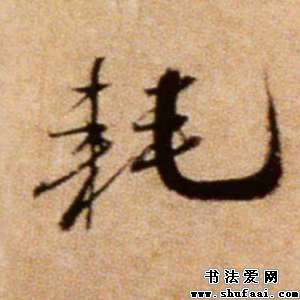 耗
书法爱网
www.shufaai.com